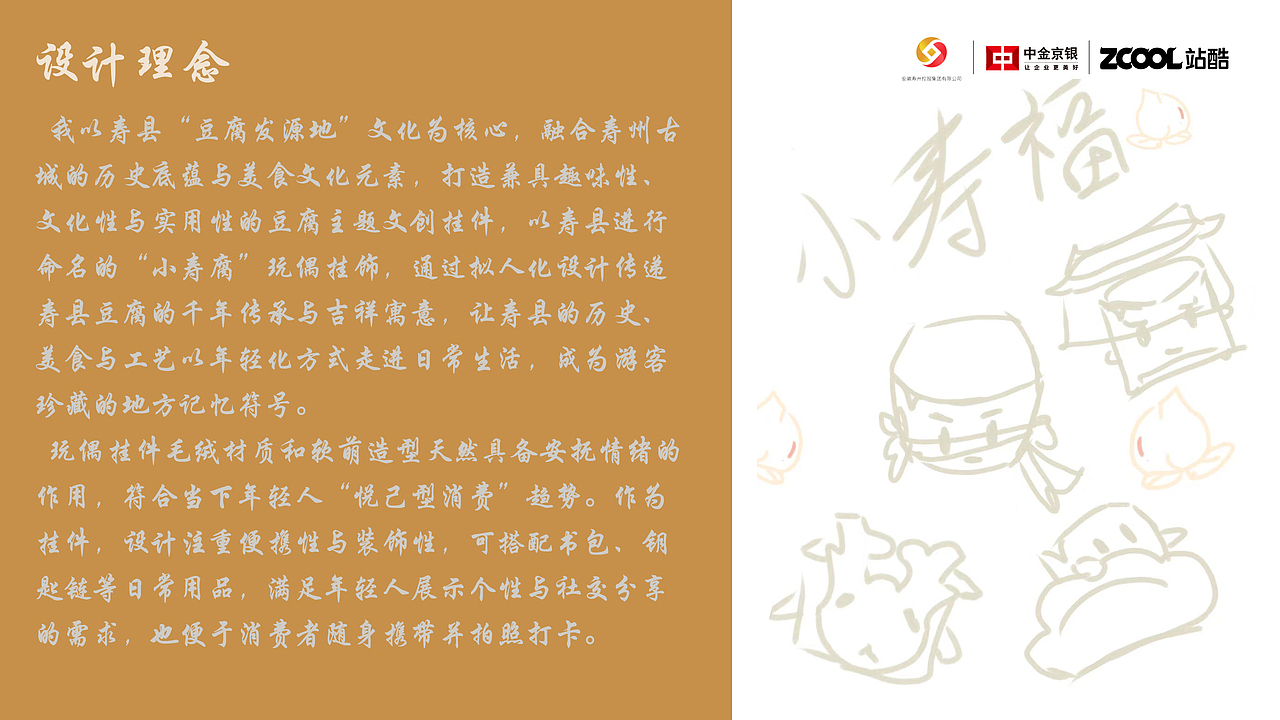 设计理念
我以寿县“豆腐发源地”文化为核心，融合寿州古
城的历史底蕴与美食文化元素，打造兼具趣味性、
文化性与实用性的豆腐主题文创挂件，以寿县进行
命名的“小寿腐”玩偶挂饰，通过拟人化设计传递
寿县豆腐的千年传承与吉祥寓意，让寿县的历史、
美食与工艺以年轻化方式走进日常生活，成为游客
珍藏的地方记忆符号。
玩偶挂件毛绒材质和软萌造型天然具备安抚情绪的
作用，符合当下年轻人“悦己型消费”趋势。作为
挂件，设计注重便携性与装饰性，可搭配书包、钥
匙链等日常用品，满足年轻人展示个性与社交分享
的需求，也便于消费者随身携带并拍照打卡。
安徽寿州控股集团有限公司
中金京银
让企业更美好
ZCOOL站酷
小寿福